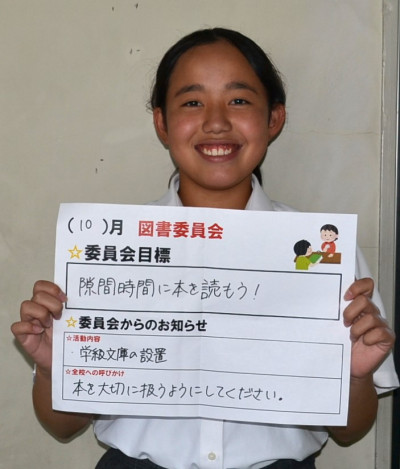 (10)月 図書委員会
☆委員会目標
隙間時間に本を読もう!
☆委員会からのお知らせ
☆活動内容
・学級文庫の設置
☆全校への呼びかけ
本を大切に扱うようにしてください。